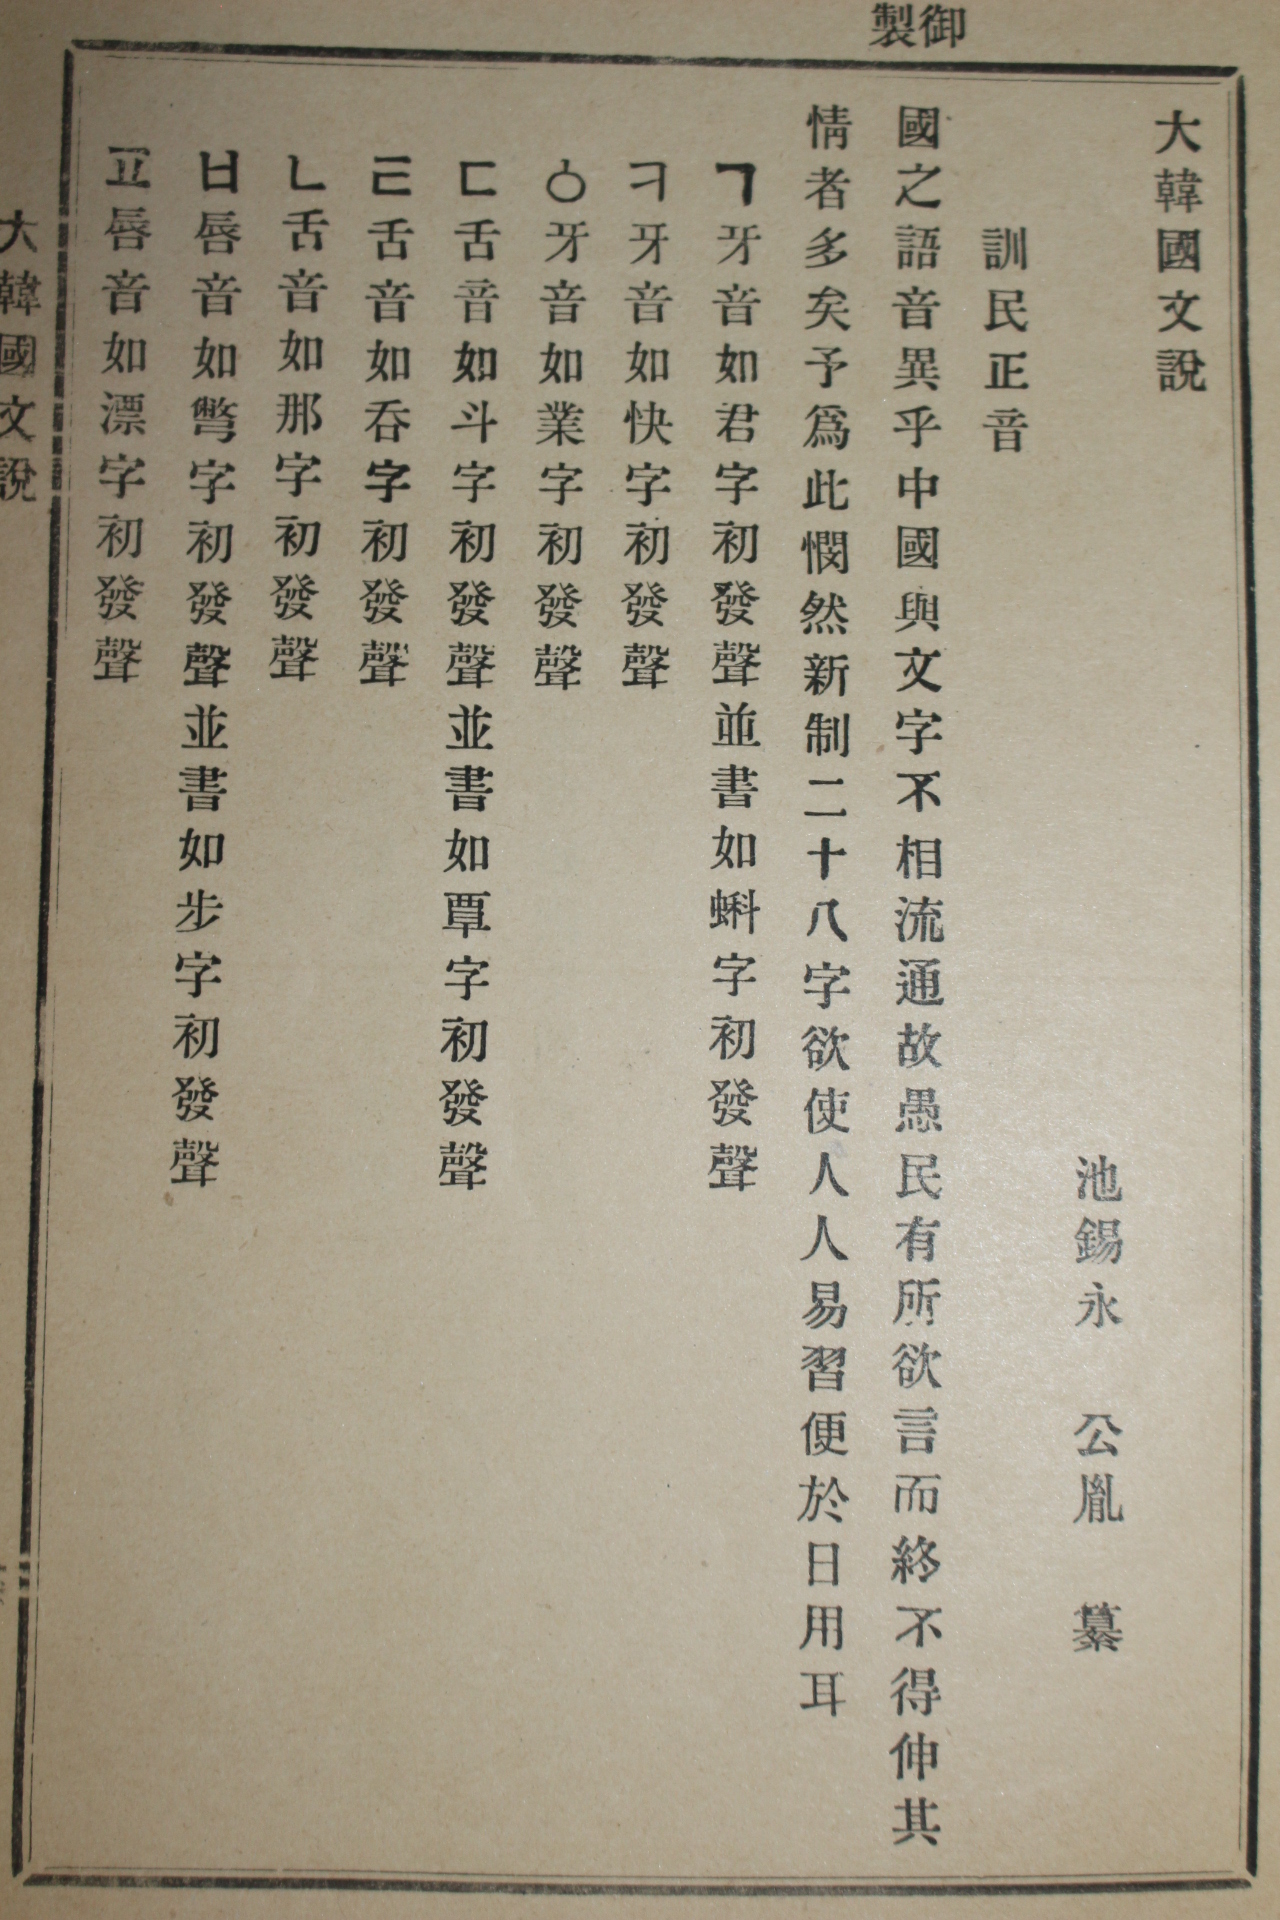 大韓國文說
池錫永 公胤 纂
訓民正音
御製
國之語音異乎中國與文字不相流通故愚民有所欲言而終不得伸其
情者多矣予爲此憫然新制二十八字欲使人人易習便於日用耳
ㄱ牙音如君字初發聲並書如蚪字初發聲
ㅋ牙音如快字初發聲
ㆁ牙音如業字初發聲
ㄷ舌音如斗字初發聲並書如覃字初發聲
ㅌ舌音如呑字初發聲
ㄴ舌音如那字初發聲
ㅂ唇音如彆字初發聲並書如步字初發聲
ㅍ唇音如漂字初發聲
大韓國文說